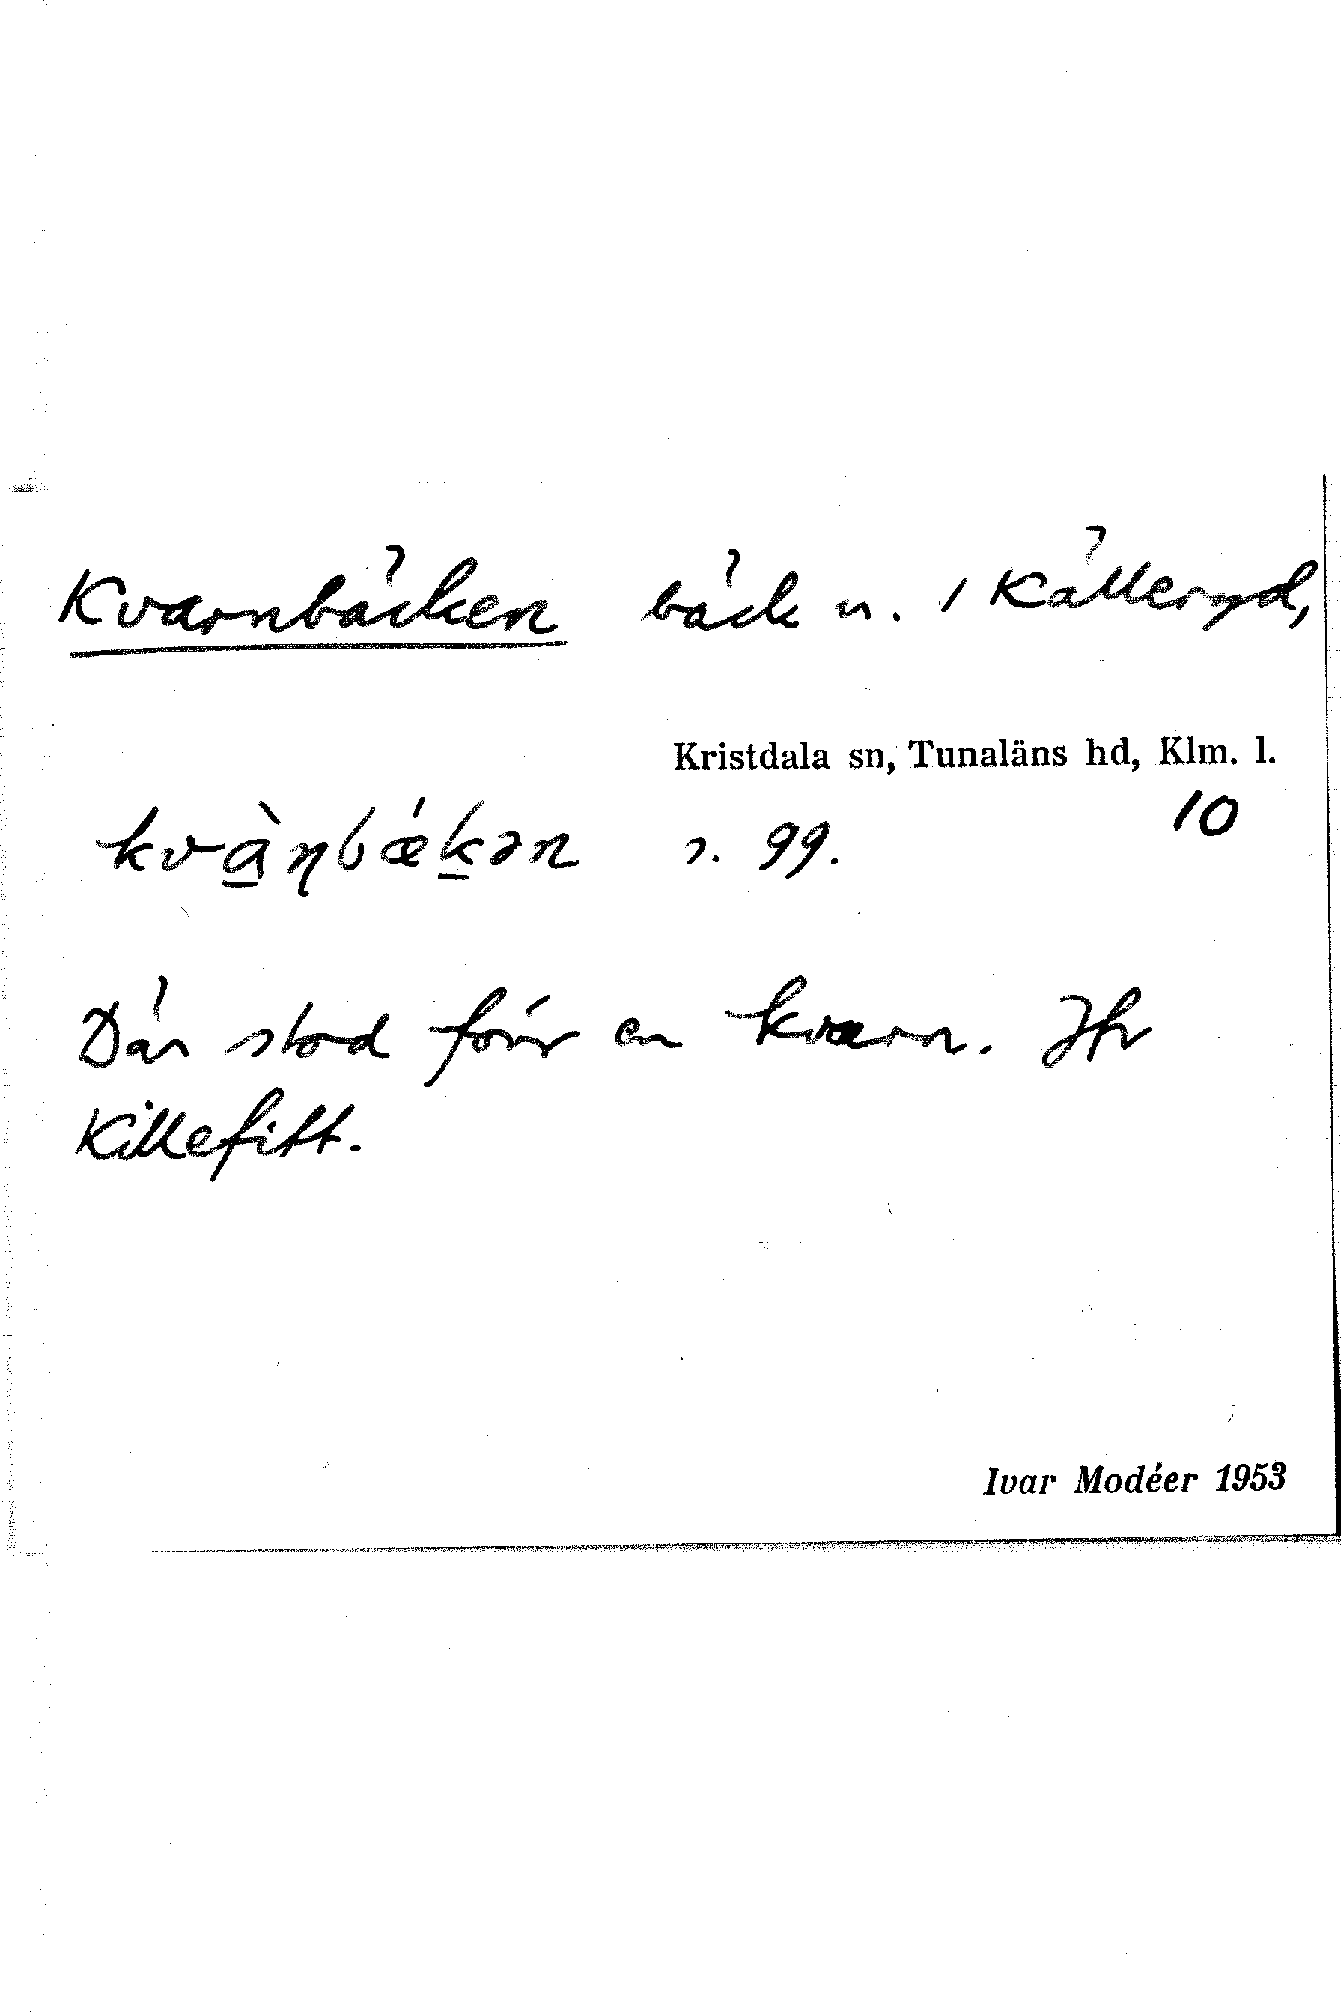 Kvarnbäcken bäck n. i Källeryd,
Kristdala sn, Tunaläns hd, Klm. l.
10
kvàṇbǽkən s. 99.
Där stod förr en kvarn. Jfr
Killefitt.
Ivar Modéer 1953